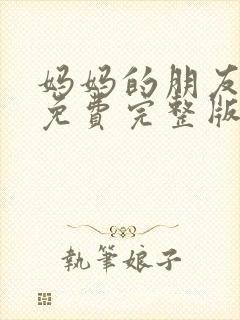 妈妈的朋友
免费完整版
執筆娘子